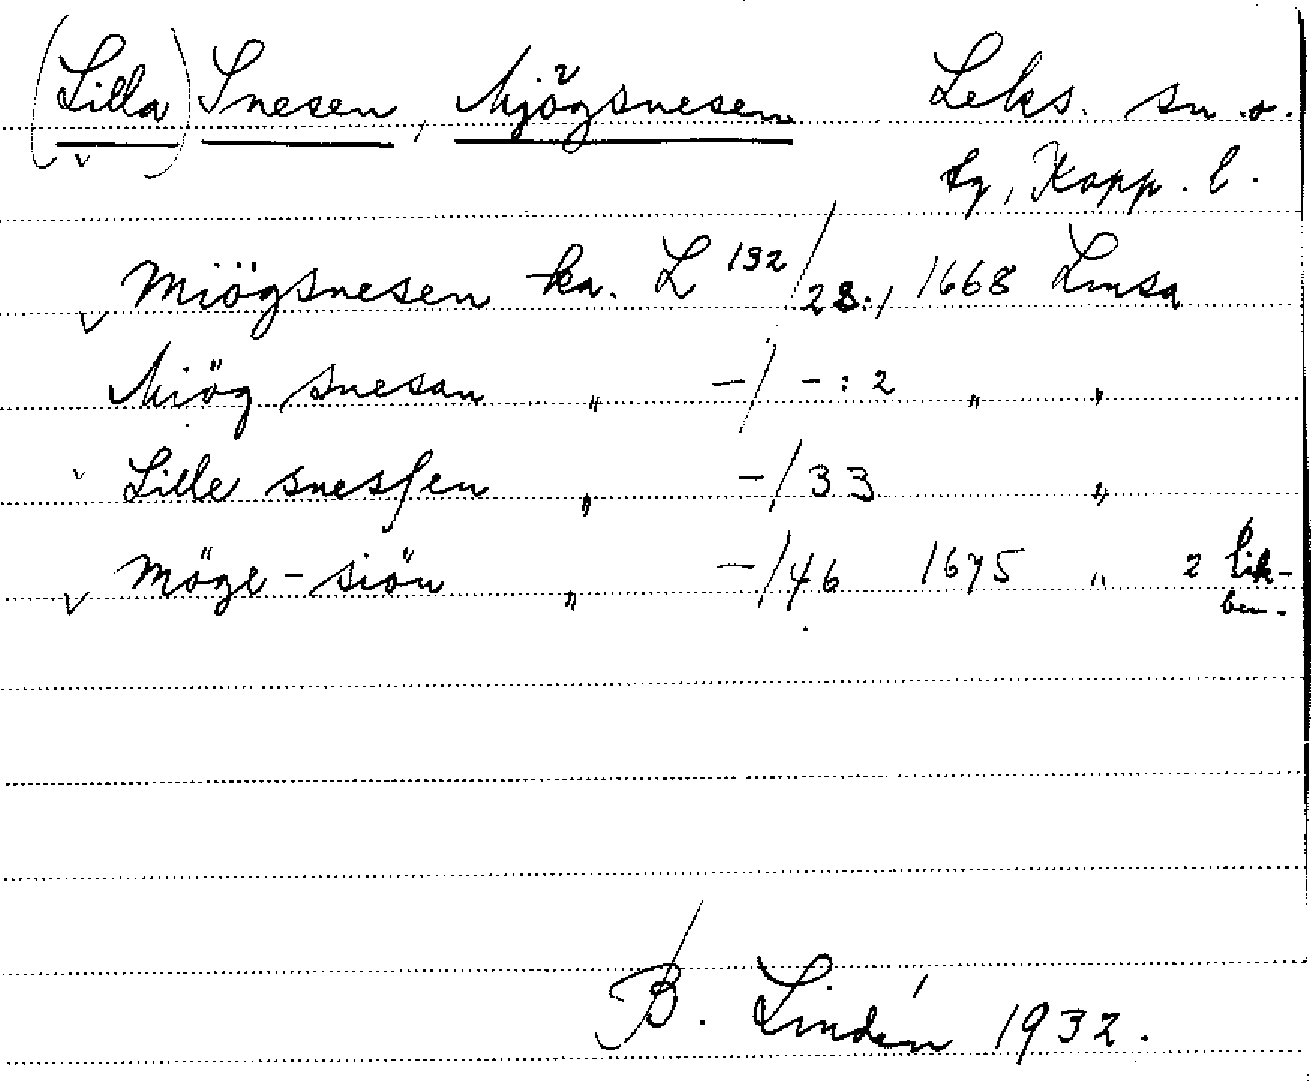 (Lilla) Snesen, Mjögsnesen Leks. sn o.
tg, Kopp. l.
Miögsnesen ka. L 192/28:1 1668 Lmsa
Miög snesan " -/ -:2 " "
Lille snessen " -/33 "
Möge-siön " -/46 1675 " 2 lik-
ben.
B. Lindén 1932.